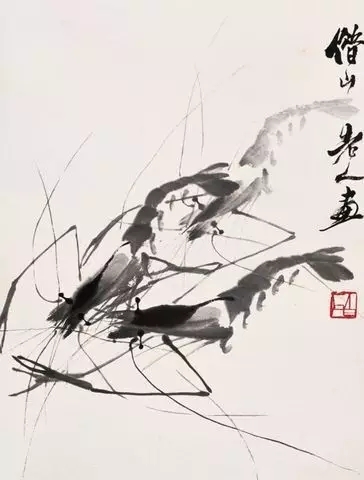 借山老人畫